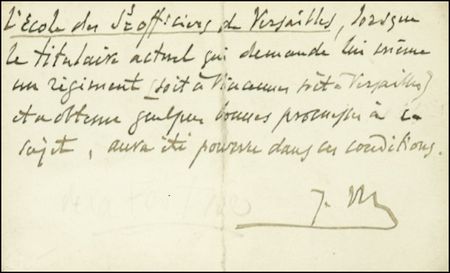 l'Ecole des Ss officiers de Versailles, lorsque
le titulaire actuel qui demande lui même
un régiment (soit à Vincennes soit à Versailles)
et a obtenu quelques bonnes promesses à ce
sujet, aura été pourvu dans ces conditions.
J. M